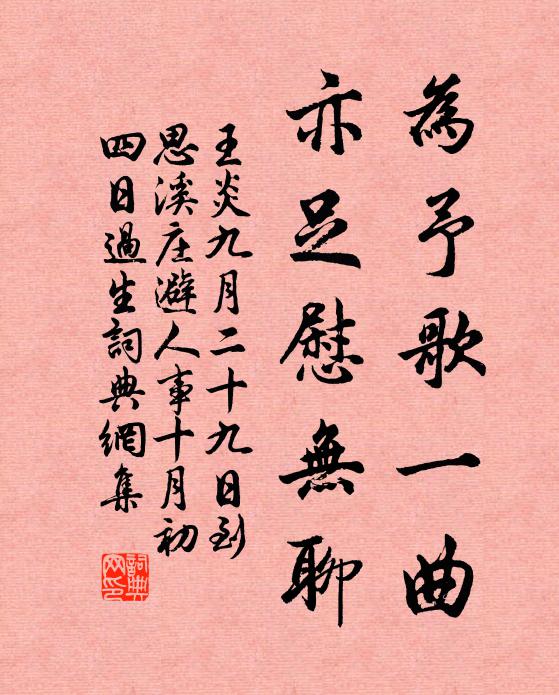 為予歌一曲
亦足慰無聊
王炎九月二十九日到
思溪庄避人事十月初
四日過生詞典網集
詞典网印